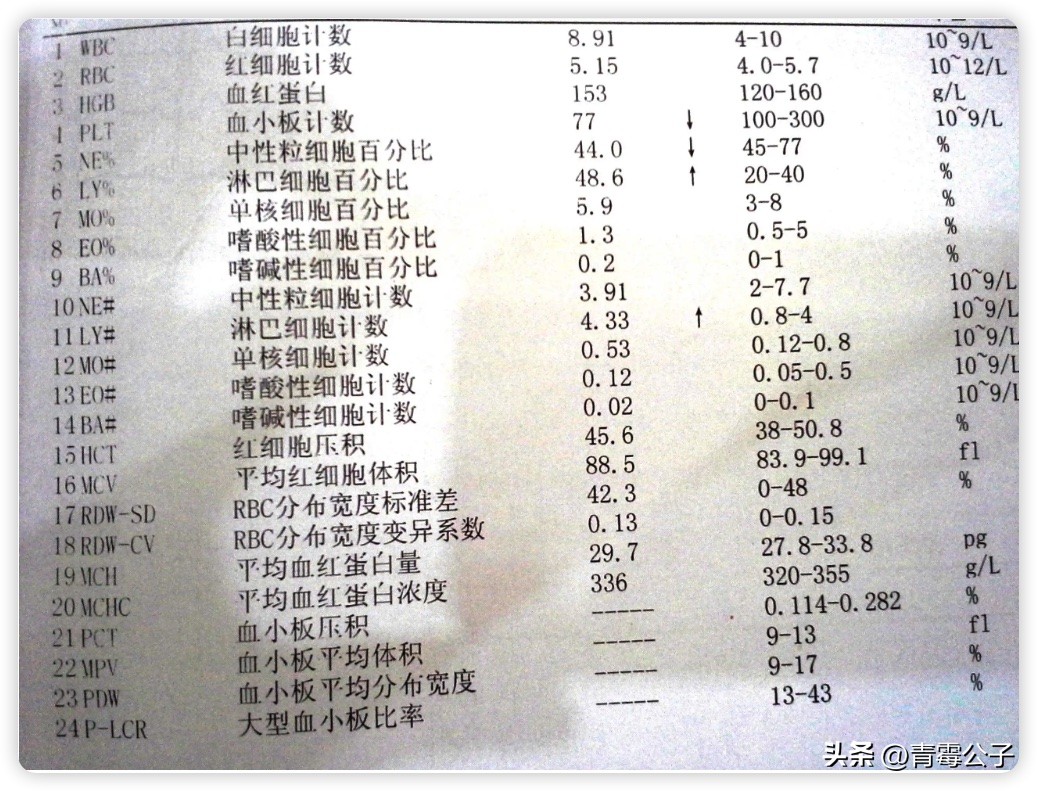 1 WBC 白细胞计数 8.91 4-10 10~9/L
2 RBC 红细胞计数 5.15 4.0-5.7 10~12/L
3 HGB 血红蛋白 153 120-160 g/L
4 PLT 血小板计数 77 ↓ 100-300 10~9/L
5 NE% 中性粒细胞百分比 44.0 ↓ 45-77 %
6 LY% 淋巴细胞百分比 48.6 ↑ 20-40 %
7 MO% 单核细胞百分比 5.9 3-8 %
8 EO% 嗜酸性细胞百分比 1.3 0.5-5 %
9 BA% 嗜碱性细胞百分比 0.2 0-1 %
10 NE# 中性粒细胞计数 3.91 2-7.7 10~9/L
11 LY# 淋巴细胞计数 4.33 ↑ 0.8-4 10~9/L
12 MO# 单核细胞计数 0.53 0.12-0.8 10~9/L
13 EO# 嗜酸性细胞计数 0.12 0.05-0.5 10~9/L
14 BA# 嗜碱性细胞计数 0.02 0-0.1 10~9/L
15 HCT 红细胞压积 45.6 38-50.8 %
16 MCV 平均红细胞体积 88.5 83.9-99.1 fl
17 RDW-SD RBC分布宽度标准差 42.3 0-48 %
18 RDW-CV RBC分布宽度变异系数 0.13 0-0.15
19 MCH 平均血红蛋白量 29.7 27.8-33.8 pg
20 MCHC 平均血红蛋白浓度 336 320-355 g/L
21 PCT 血小板压积 ----- 0.114-0.282 %
22 MPV 血小板平均体积 ----- 9-13 fl
23 PDW 血小板平均分布宽度 ----- 9-17 %
24 P-LCR 大型血小板比率 ----- 13-43 %
头条 @青霉公子